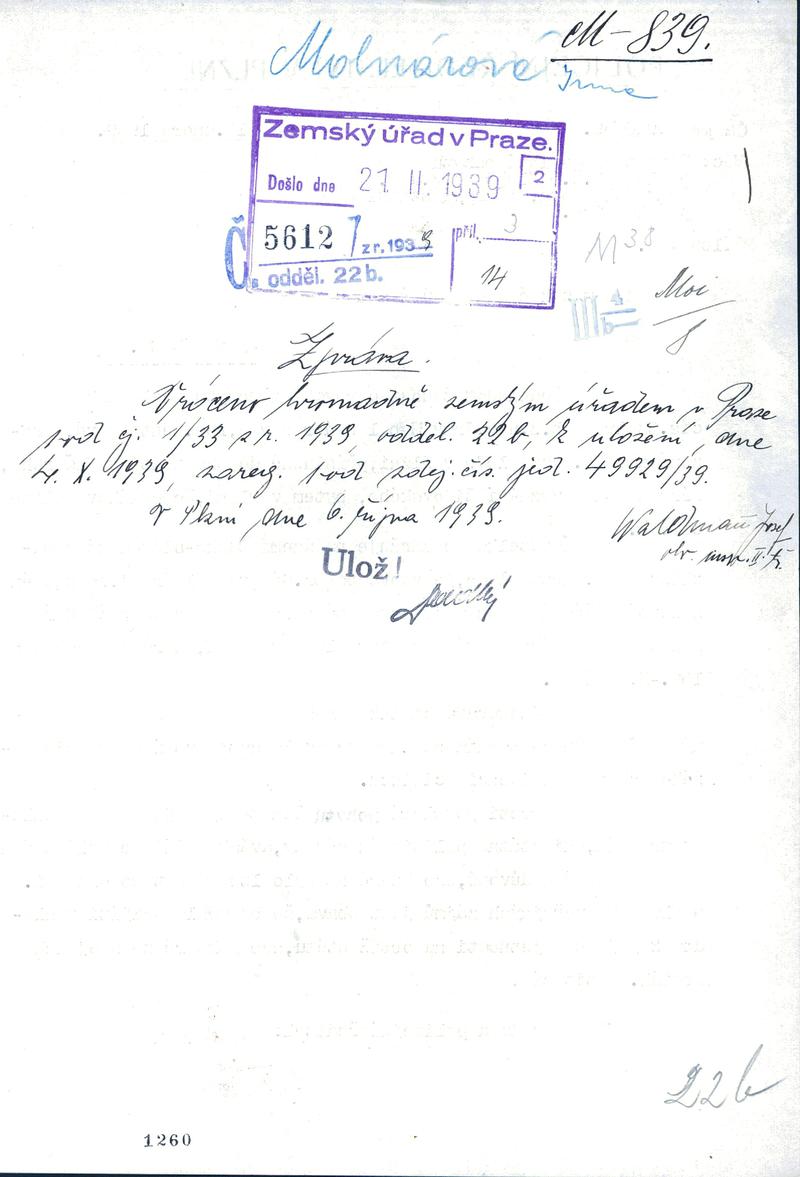 M-839.
Molnárová
Irma
Zemský úřad v Praze.
Došlo dne 27 II. 1939 2
Č 5612 / z r. 1939 příl. 3
odděl. 22b. 14
M 38
III 4/b
8
Zpráva.
Vráceno hromadně zemským úřadem v Praze
pod čj. 1/33 z r. 1939, odděl. 22b, k uložení, dne
4. X. 1939, zareg. pod zdej. čís. jed. 49929/39.
V Plzni dne 6. října 1939.
Waldmann Josef
Ulož!
22b
1260